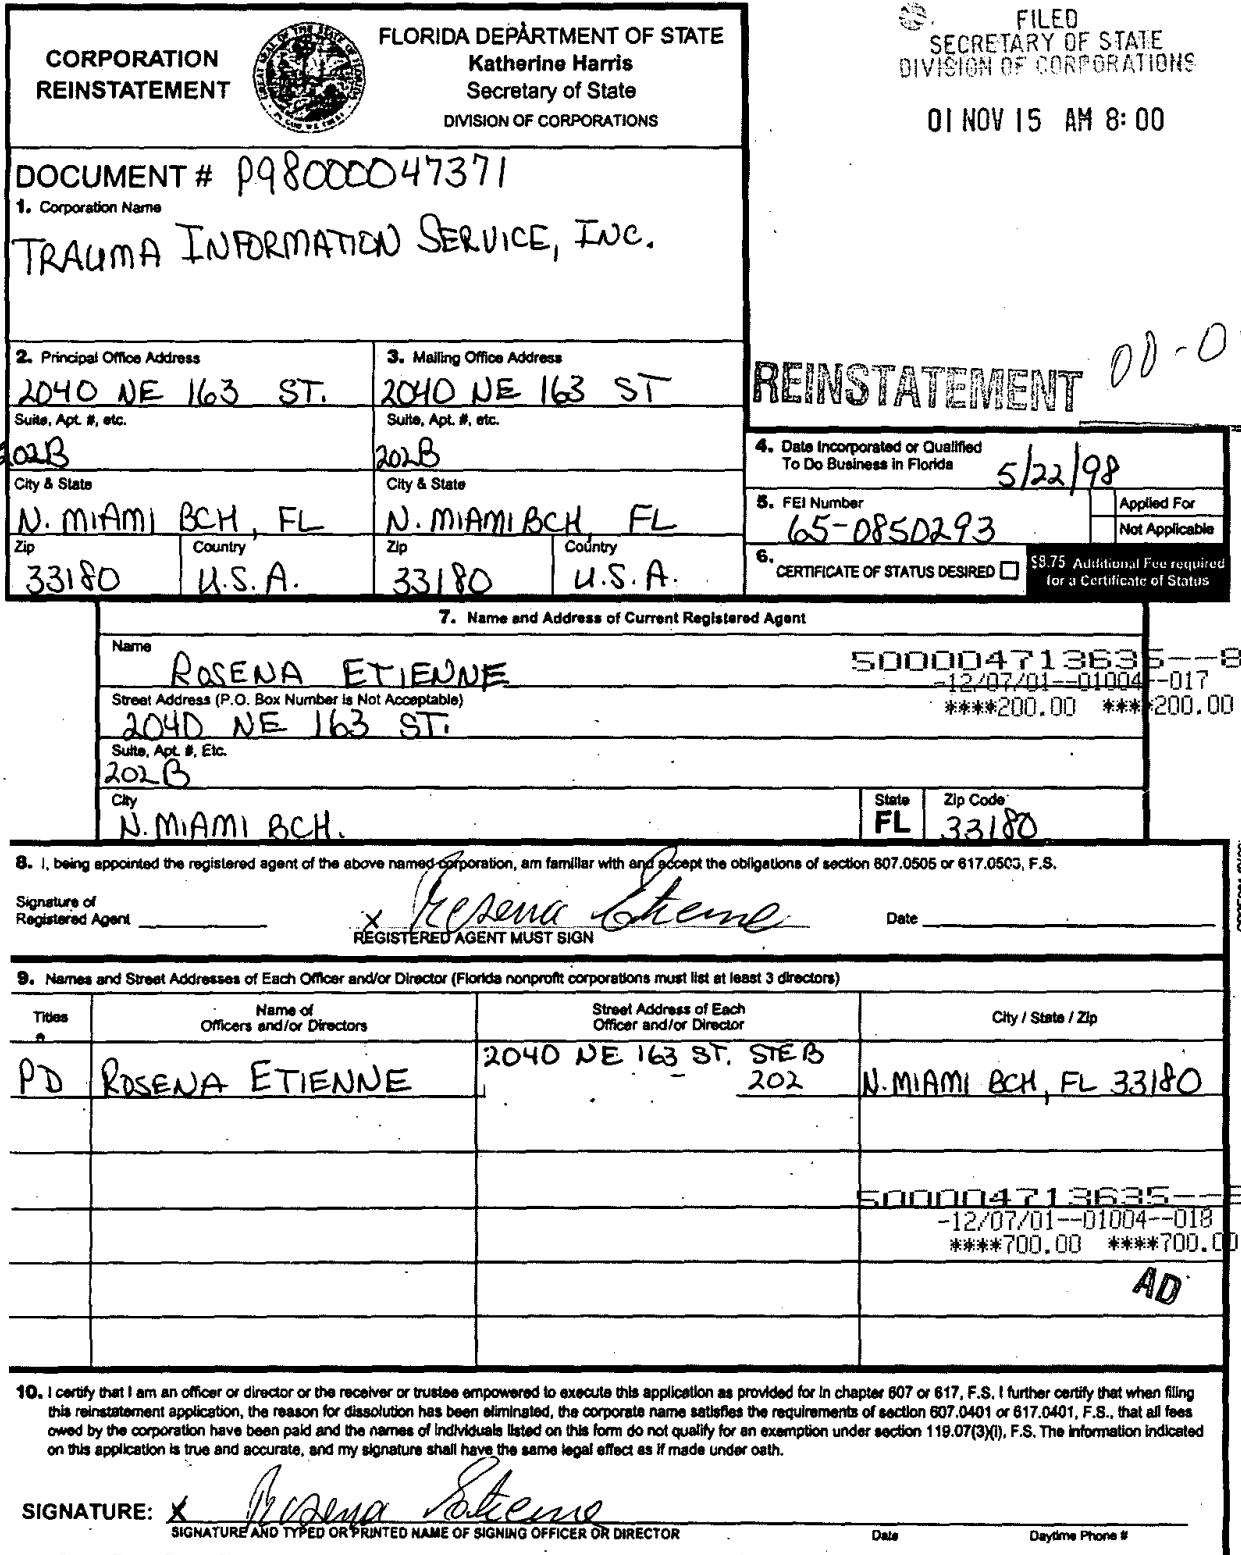 CORPORATION
REINSTATEMENT
FLORIDA DEPARTMENT OF STATE
Katherine Harris
Secretary of State
DIVISION OF CORPORATIONS
FILED
SECRETARY OF STATE
DIVISION OF CORPORATIONS
01 NOV 15 AM 8:00
DOCUMENT # P98000047371
1. Corporation Name
TRAUMA INFORMATION SERVICE, INC.
2. Principal Office Address
2040 NE 163 ST.
Suite, Apt. #, etc.
202B
City & State
N. MIAMI BCH, FL
Zip Country
33180 U.S.A.
3. Mailing Office Address
2040 NE 163 ST
Suite, Apt. #, etc.
202B
City & State
N. MIAMI BCH FL
Zip Country
33180 U.S.A.
REINSTATEMENT
4. Date Incorporated or Qualified
To Do Business in Florida 5/22/98
5. FEI Number
65-0850293
Applied For
Not Applicable
6. CERTIFICATE OF STATUS DESIRED
$8.75 Additional Fee required
for a Certificate of Status
7. Name and Address of Current Registered Agent
Name
ROSENA ETIENNE
500004713635--8
-12/07/01--01004--017
****200.00 ****200.00
Street Address (P.O. Box Number is Not Acceptable)
2040 NE 163 ST.
Suite, Apt. #, Etc.
202B
City State Zip Code
N. MIAMI BCH. FL 33180
8. I, being appointed the registered agent of the above named corporation, am familiar with and accept the obligations of section 607.0505 or 617.0503, F.S.
Signature of
Registered Agent x Rosena Etienne Date
REGISTERED AGENT MUST SIGN
9. Names and Street Addresses of Each Officer and/or Director (Florida nonprofit corporations must list at least 3 directors)
Titles Name of
Officers and/or Directors Street Address of Each
Officer and/or Director City / State / Zip
PD ROSENA ETIENNE 2040 NE 163 ST. STE B
202 N. MIAMI BCH, FL 33180
500004713635--8
-12/07/01--01004--018
****700.00 ****700.00
AD
10. I certify that I am an officer or director or the receiver or trustee empowered to execute this application as provided for in chapter 607 or 617, F.S. I further certify that when filing
this reinstatement application, the reason for dissolution has been eliminated, the corporate name satisfies the requirements of section 607.0401 or 617.0401, F.S., that all fees
owed by the corporation have been paid and the names of individuals listed on this form do not qualify for an exemption under section 119.07(3)(i), F.S. The information indicated
on this application is true and accurate, and my signature shall have the same legal effect as if made under oath.
SIGNATURE: x Rosena Etienne
SIGNATURE AND TYPED OR PRINTED NAME OF SIGNING OFFICER OR DIRECTOR Date Daytime Phone #